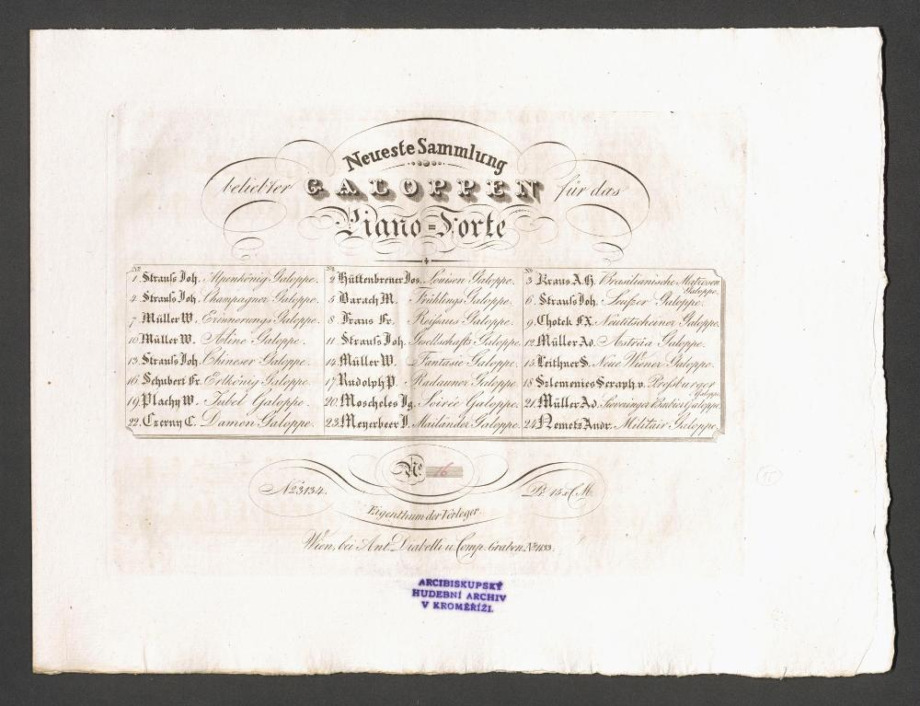 Neueste Sammlung
beliebter GALOPPEN für das
Piano=Forte
No No No
1 Strauss Joh. Alpenkönig Galoppe. 2 Hüttenbrener Jos. Louisen Galoppe. 3 Kraus A.H. Brasilianische Matrosen Galoppe.
4 Strauss Joh. Champagner Galoppe. 5 Barach M. Frühlings Galoppe. 6 Strauss Joh. Seufzer Galoppe.
7 Müller W. Erinnerungs Galoppe. 8 Fraus Fr. Reissaus Galoppe. 9 Chotek F.X. Neutitscheiner Galoppe.
10 Müller W. Aline Galoppe. 11 Strauss Joh. Gesellschafts Galoppe. 12 Müller Ad. Asträa Galoppe.
13 Strauss Joh. Chineser Galoppe. 14 Müller W. Fantasie Galoppe. 15 Leithner S. Neue Wiener Galoppe.
16 Schubert Fr. Erlkönig Galoppe. 17 Rudolph P. Radauner Galoppe. 18 Szlemenies Seraph v. Pressburger Galoppe.
19 Plachy W. Jubel Galoppe. 20 Moscheles Ig. Soirée Galoppe. 21 Müller Ad. Galoppe.
22 Czerny C. Damen Galoppe. 23 Meyerbeer J. Mailänder Galoppe. 24 Nemetz Andr. Militair Galoppe.
No 16
No 3134. Pr. 15 x C.M.
Eigenthum der Verleger.
Wien, bei Ant. Diabelli u. Comp. Graben No 1133.
ARCIBISKUPSKÝ
HUDEBNÍ ARCHIV
V KROMĚŘÍŽI.